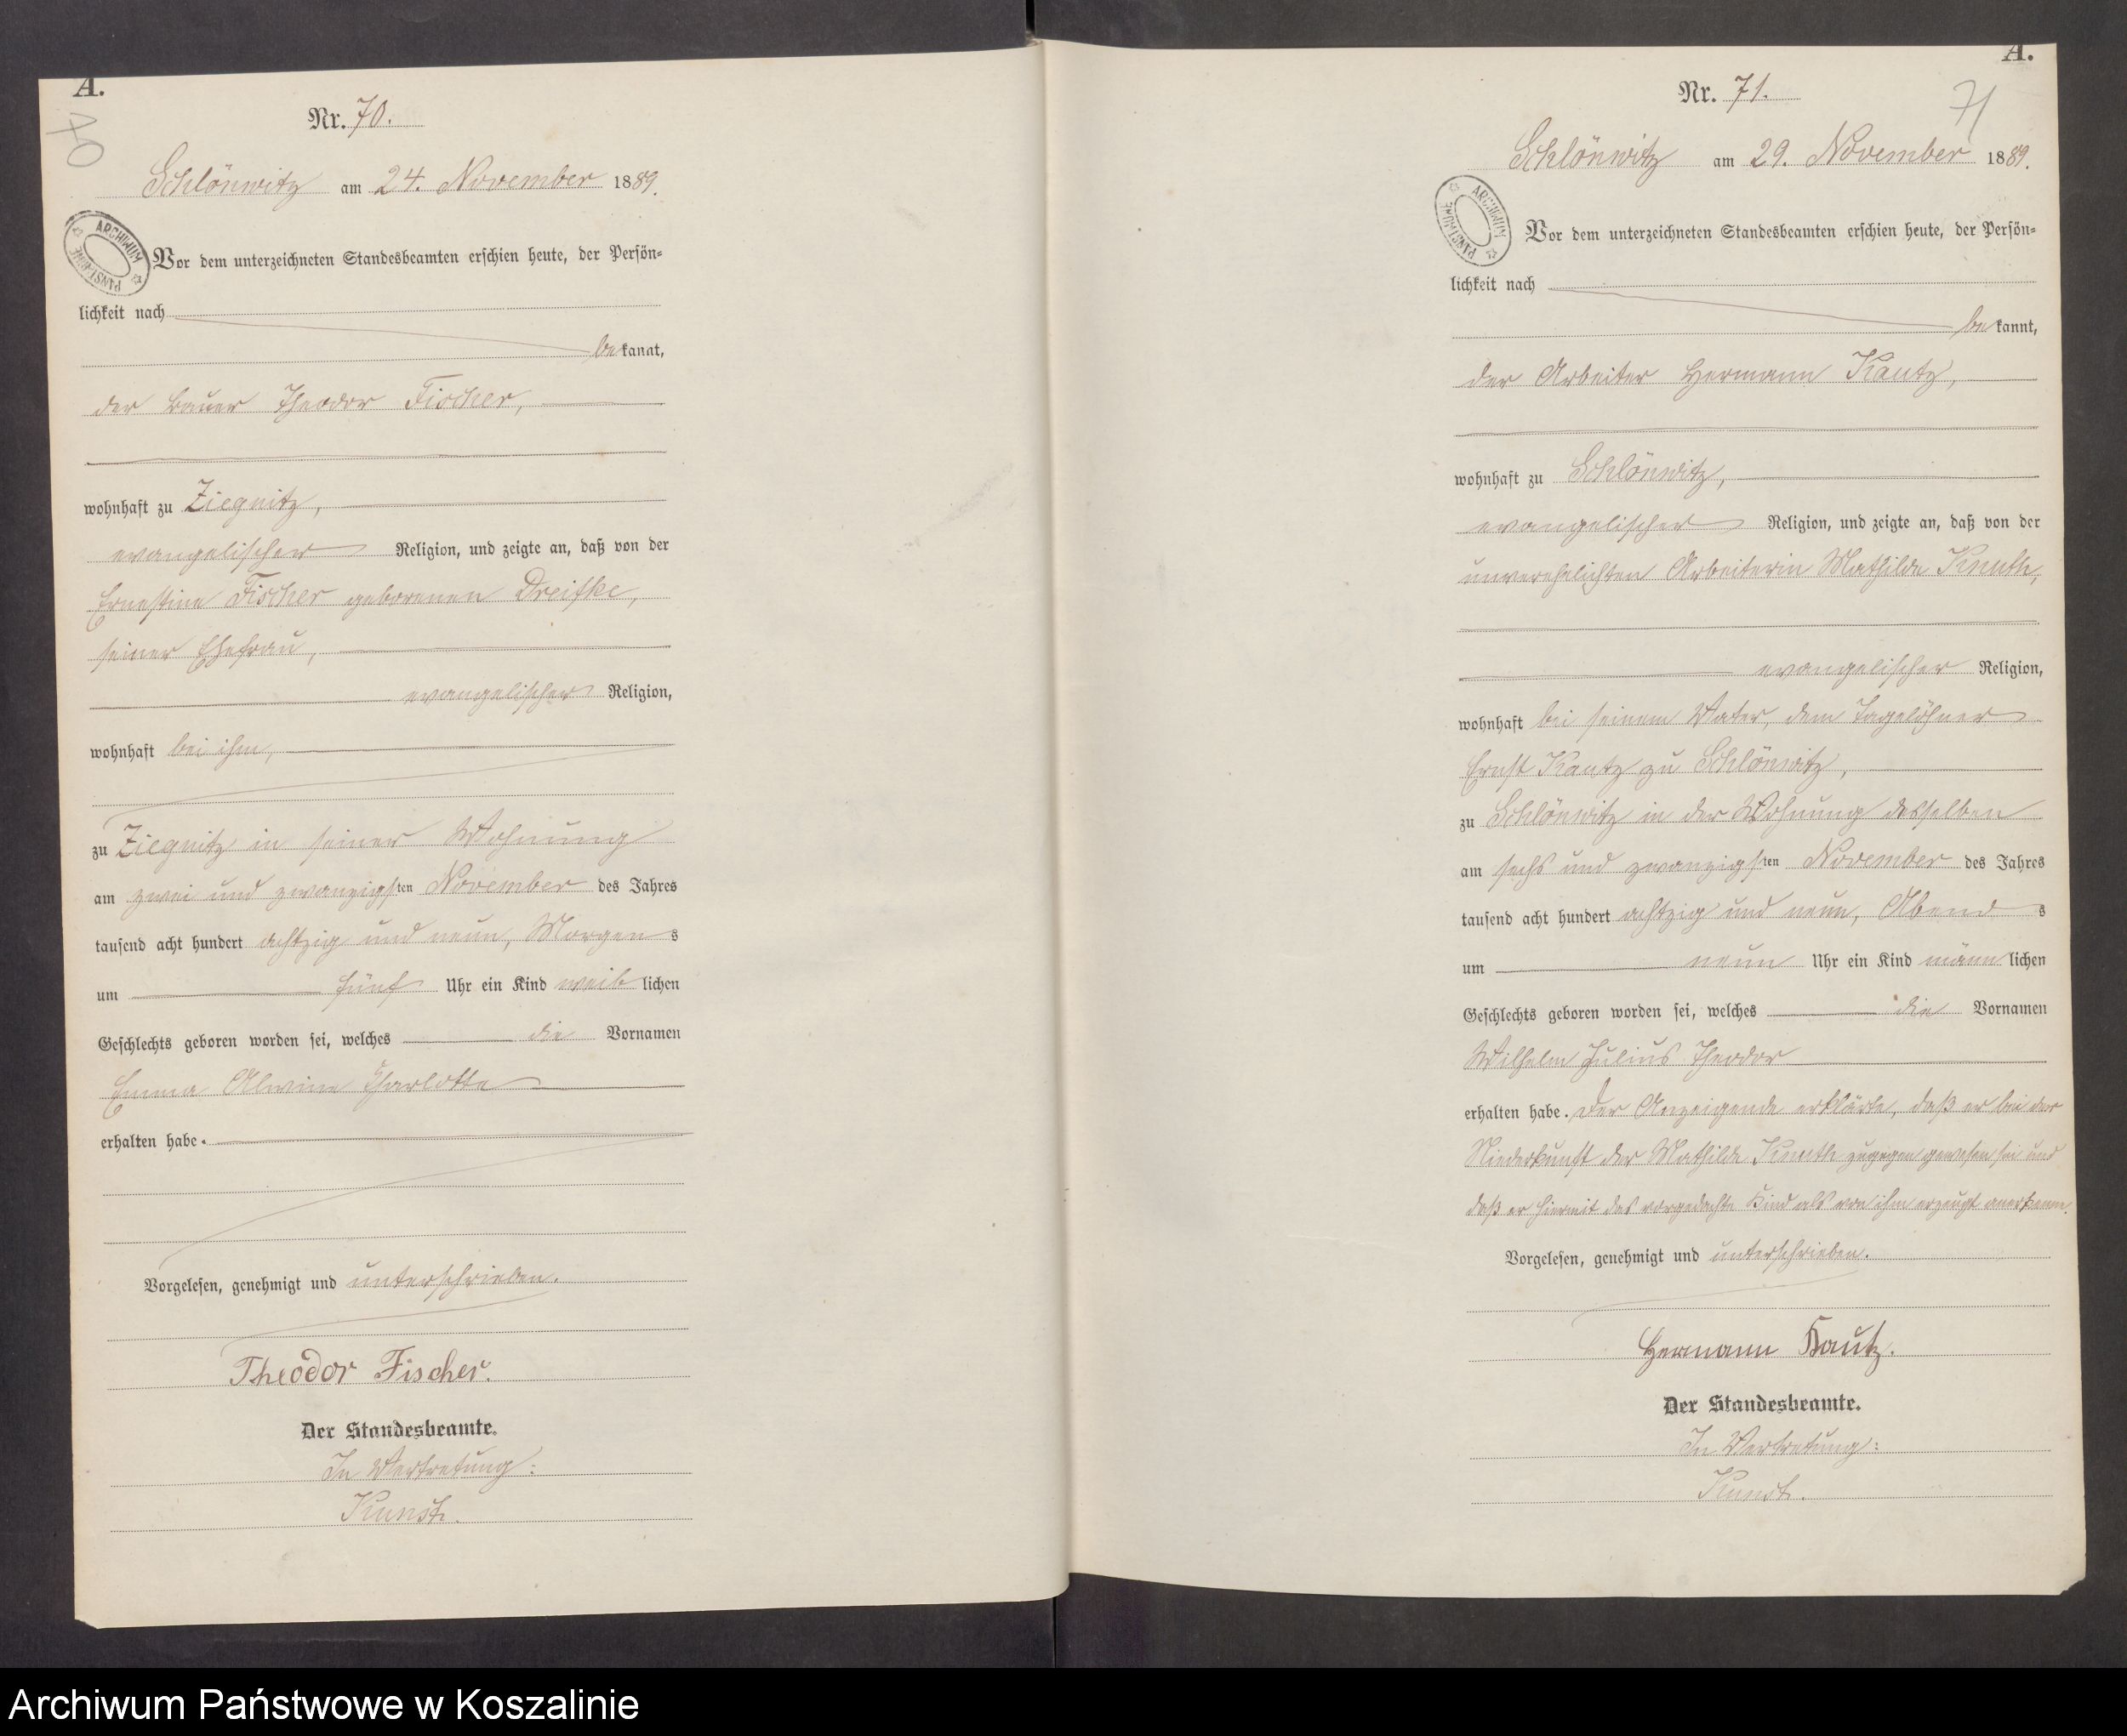 A.
70
Nr. 70.
Schlönwitz am 24. November 1889.
ARCHIWUM PAŃSTWOWE
Vor dem unterzeichneten Standesbeamten erschien heute, der Persön-
lichkeit nach
bekannt,
der Bauer Theodor Fischer,
wohnhaft zu Ziegnitz,
evangelischer Religion, und zeigte an, daß von der
Ernestine Fischer geborenen Dreifke,
seiner Ehefrau,
evangelischer Religion,
wohnhaft bei ihm,
zu Ziegnitz in seiner Wohnung
am zwei und zwanzigsten November des Jahres
tausend acht hundert achtzig und neun, Morgens
um fünf Uhr ein Kind weiblichen
Geschlechts geboren worden sei, welches die Vornamen
Emma Alwine Charlotte
erhalten habe.
Vorgelesen, genehmigt und unterschrieben.
Theodor Fischer.
Der Standesbeamte.
In Vertretung:
A.
71
Nr. 71.
Schlönwitz am 29. November 1889.
ARCHIWUM PAŃSTWOWE
Vor dem unterzeichneten Standesbeamten erschien heute, der Persön-
lichkeit nach
bekannt,
der Arbeiter Hermann Kautz,
wohnhaft zu Schlönwitz,
evangelischer Religion, und zeigte an, daß von der
unverehelichten Arbeiterin Mathilde Knuth,
evangelischer Religion,
wohnhaft bei seinem Vater, dem Tagelöhner
Ernst Kautz zu Schlönwitz,
zu Schlönwitz in der Wohnung desselben
am sechs und zwanzigsten November des Jahres
tausend acht hundert achtzig und neun, Abends
um neun Uhr ein Kind männlichen
Geschlechts geboren worden sei, welches die Vornamen
Wilhelm Julius Theodor
erhalten habe. Der Anzeigende erklärte, daß er bei der
Niederkunft der Mathilde Knuth zugegen gewesen sei und
daß er hiermit das vorgedachte Kind als von ihm erzeugt anerkenne.
Vorgelesen, genehmigt und unterschrieben.
Hermann Kautz.
Der Standesbeamte.
In Vertretung:
Archiwum Państwowe w Koszalinie